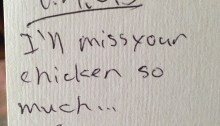 I'll miss your
chicken so
much...